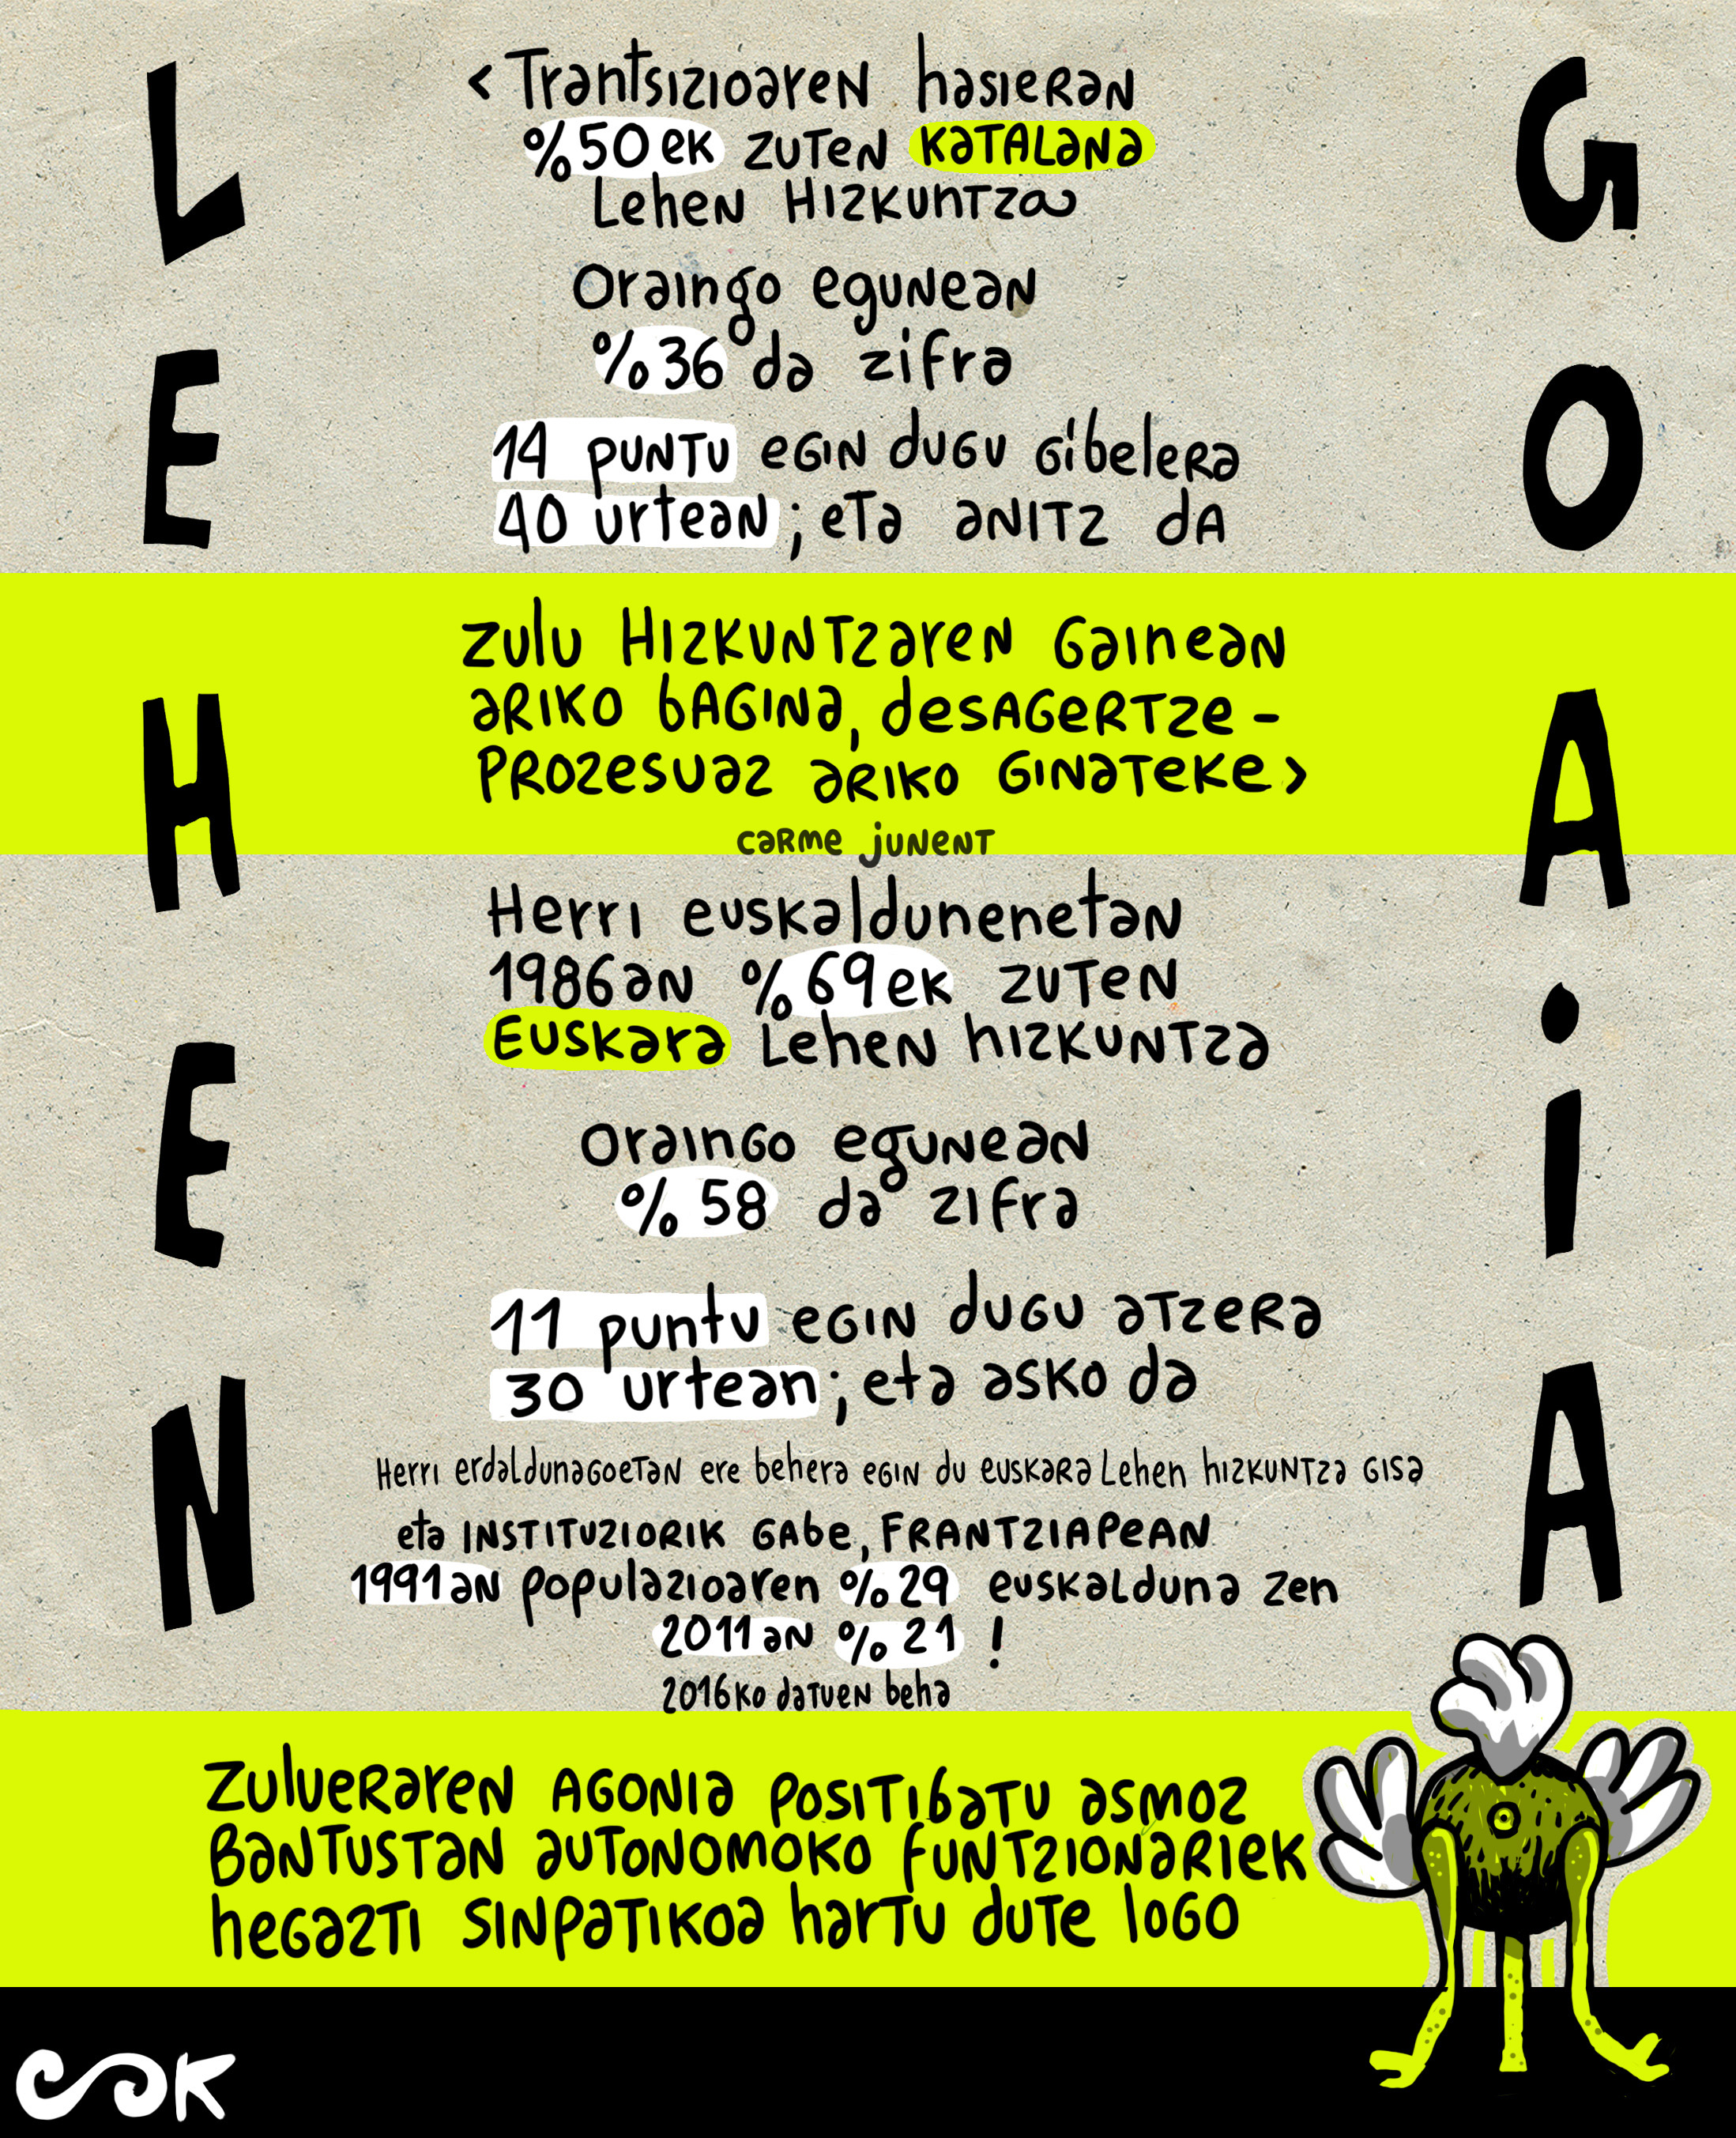 LEHEN
GOAiA
< Trantsizioaren hasieran
%50ek zuten katalana
Lehen Hizkuntza
Oraingo egunean
%36 da zifra
14 puntu egin dugu gibelera
40 urtean; eta anitz da
Zulu Hizkuntzaren gainean
ariko bagina, desagertze-
prozesuaz ariko ginateke >
carme junent
Herri euskaldunenetan
1986an %69ek zuten
Euskara Lehen hizkuntza
Oraingo egunean
% 58 da zifra
11 puntu egin dugu atzera
30 urtean; eta asko da
Herri erdaldunagoetan ere behera egin du euskara Lehen hizkuntza gisa
eta instituziorik gabe, Frantziapean
1991an populazioaren %29 euskalduna zen
2011an %21 !
2016ko datuen beha
Zulueraren agonia positibatu asmoz
Bantustan autonomoko funtzionariek
hegazti sinpatikoa hartu dute logo